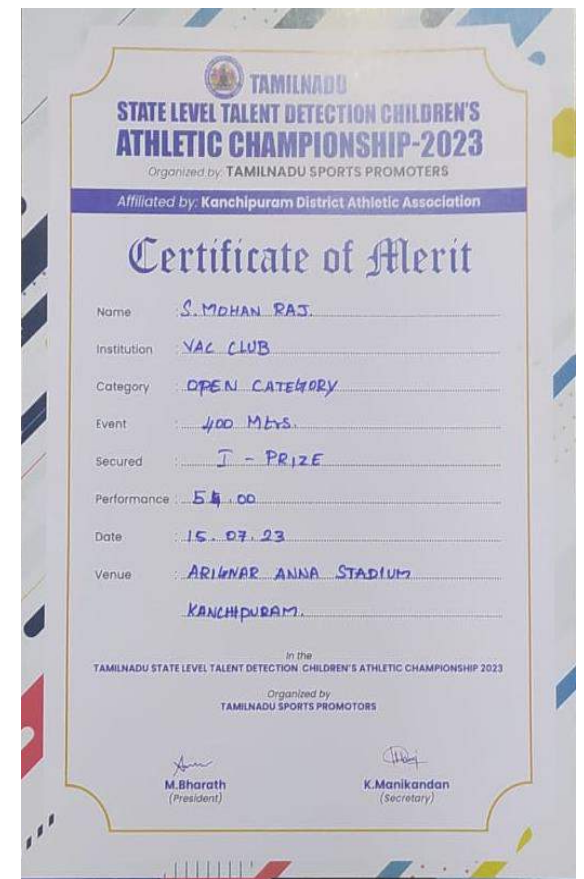 TAMILNADU
STATE LEVEL TALENT DETECTION CHILDREN'S
ATHLETIC CHAMPIONSHIP-2023
Organized by: TAMILNADU SPORTS PROMOTERS
Affiliated by: Kanchipuram District Athletic Association
Certificate of Merit
Name S. MOHAN RAJ.
Institution : VAC CLUB
Category : OPEN CATEGORY
Event : 400 Mtrs.
Secured : I - PRIZE
Performance : .00
Date : 15.07.23
Venue : ARIGNAR ANNA STADIUM
KANCHIPURAM.
In the
TAMILNADU STATE LEVEL TALENT DETECTION CHILDREN'S ATHLETIC CHAMPIONSHIP 2023
Organized by
TAMILNADU SPORTS PROMOTORS
M.Bharath K.Manikandan
(President) (Secretary)